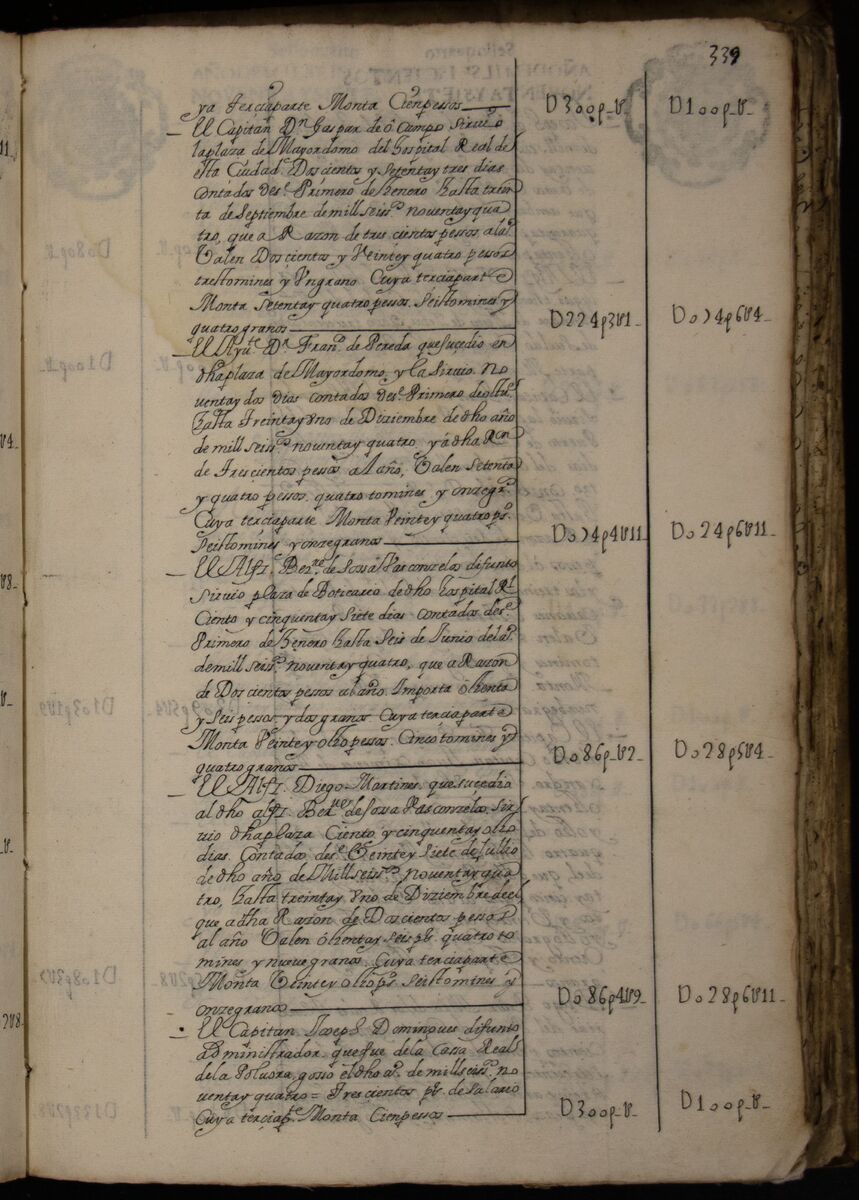 339
ya terciaparte Monta Cienpessos D300p_U_ D100p_U_
El Capitan Dn Gaspar de ocampo siruio
laplaza de Mayordomo del hospital Real de
esta Ciudad Doscientos y Setentaytres dias
Contados desde Primero de henero hasta trein
ta de septiembre demill seiss noventayqua
tro, que a Razon de tres cientos pessos alaño
Valen Doscientos y Veintey quatro pessos
trestomines y Vngrano Cuya terciaparte
Monta Setentay quatro pessos seistomines y
quatro granos D224p3U1_ Do74p6U4_
El Ayute Dn Frano de Pereda quesucedio en
dhaplaza de Mayordomo, y la siruio No
ventay dos dias contados desde Primero de
hasta treintay Vno de Diziembre de dho año
de mill seiss noventay quatro, y a dha Ron
de Trescientos pessos alaño, Valen Setenta
y quatro pessos quatro tomines y onzegrs
Cuya terciaparte Monta Veintey quatro ps
seistomines y onzegranos Do74p4U11_ Do24p6U11_
El Alfz Berne de Sossa Vasconzelos difunto
siruio plaza de Boticario de dho hospital Rl
Ciento y cinquentay siete dias contados desde
Primero de henero hasta seis de Junio del año
demill seiss noventay quatro, que a Razon
de Doscientos pessos alaño Importa ochenta
y seis pessos y dos granos Cuya terciaparte
Monta Veintey ochopessos Cinco tomines y
quatro granos Do86p_U2_ Do28p5U4_
El Alfz Diego Martines quesucedio
al dho alfz Berne de Sossa Vasconzelos sir
uio dhaplaza Ciento y cinquentay ocho
dias Contados desde Veintey siete de Jullio
de dho año de Mill seiss noventay qua
tro, hasta treintay Vno de Diziembre de el
que a dha Razon de Doscientos pessos
al año Valen ochentay seis ps quatro to
mines y nueve granos Cuya terciaparte
Monta Veintey ocho ps seistomines y
onzegranos Do86p4U9_ Do28p6U11_
El Capitan Joseph Domingues difunto
administrador quefue de la Cassa Real
de la Poluora, gosó el dho aº de mill seiss no
ventay quatro = Trescientos ps de salario
Cuya terciapte Monta Cienpessos D300p_U_ D100p_U_